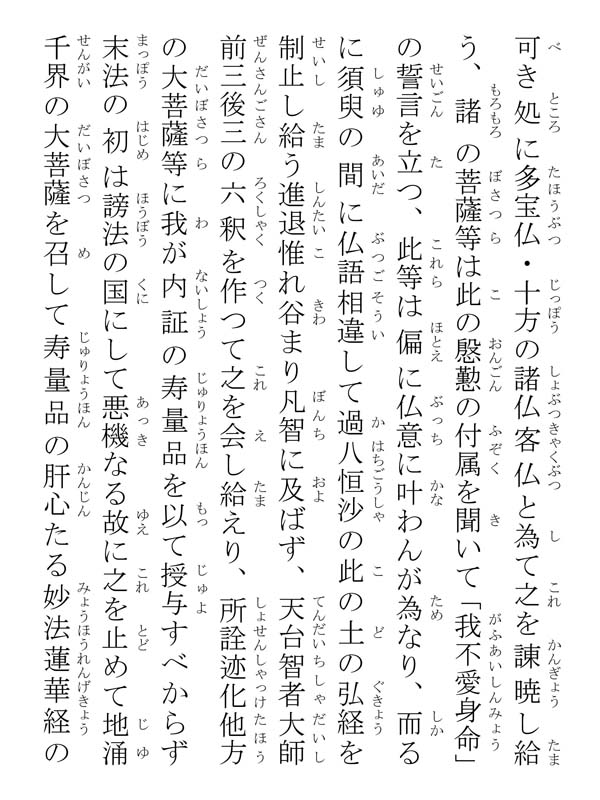 可き処に多宝仏・十方の諸仏客仏と為て之を諌暁し給
う、諸の菩薩等は此の慇懃の付属を聞いて「我不愛身命」
の誓言を立つ、此等は偏に仏意に叶わんが為なり、而る
に須臾の間に仏語相違して過八恒沙の此の土の弘経を
制止し給う進退惟れ谷まり凡智に及ばず、天台智者大師
前三後三の六釈を作つて之を会し給えり、所詮迹化他方
の大菩薩等に我が内証の寿量品を以て授与すべからず
末法の初は謗法の国にして悪機なる故に之を止めて地涌
千界の大菩薩を召して寿量品の肝心たる妙法蓮華経の